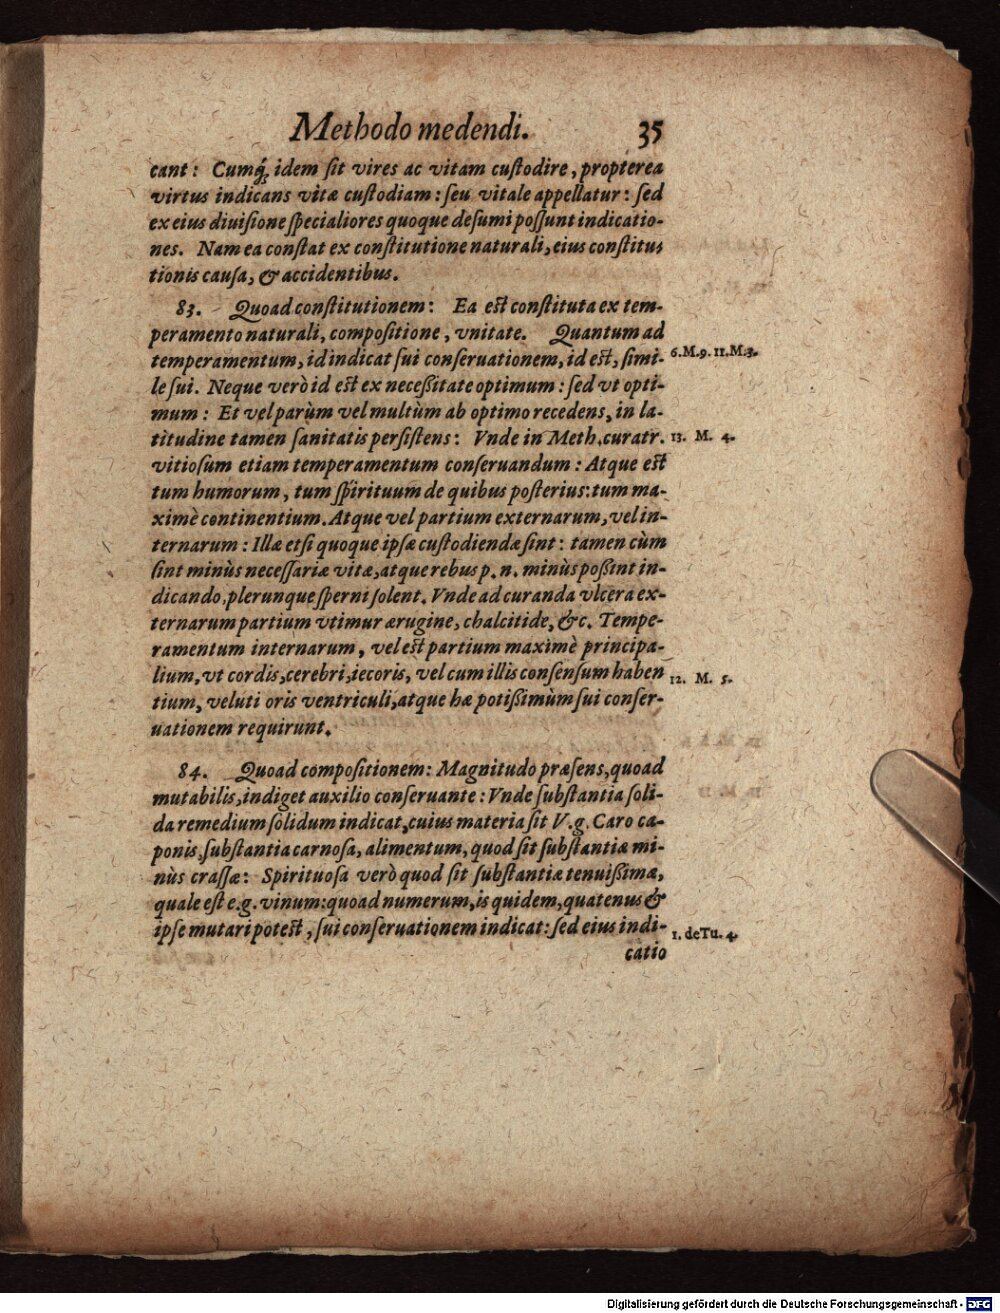 Methodo medendi. 35
cant: Cumq́; idem ſit vires ac vitam cuſtodire, propterea
virtus indicans vitæ cuſtodiam: ſeu vitale appellatur: ſed
ex eius diuiſione ſpecialiores quoque deſumi poſſunt indicatio-
nes. Nam ea conſtat ex conſtitutione naturali, eius conſtitu-
tionis cauſa, & accidentibus.
83. Quoad conſtitutionem: Ea eſt conſtituta ex tem-
peramento naturali, compoſitione, vnitate. Quantum ad
temperamentum, id indicat ſui conſeruationem, id eſt, ſimi- 6. M. 9. 11. M. 3.
le ſui. Neque verò id eſt ex neceßitate optimum: ſed vt opti-
mum: Et vel parùm vel multùm ab optimo recedens, in la-
titudine tamen ſanitatis perſiſtens: Vnde in Meth. curatr. 13. M. 4.
vitioſum etiam temperamentum conſeruandum: Atque eſt
tum humorum, tum ſpirituum de quibus poſterius: tum ma-
ximè continentium. Atque vel partium externarum, vel in-
ternarum: Illæ etſi quoque ipſæ cuſtodiendæ ſint: tamen cùm
ſint minùs neceſſariæ vitæ, atque rebus p. n. minùs poßint in-
dicando, plerunque ſperni ſolent. Vnde ad curanda vlcera ex-
ternarum partium vtimur ærugine, chalcitide, &c. Tempe-
ramentum internarum, vel eſt partium maximè principa-
lium, vt cordis, cerebri, iecoris, vel cum illis conſenſum haben 12. M. 5.
tium, veluti oris ventriculi, atque hæ potißimùm ſui conſer-
uationem requirunt.
84. Quoad compoſitionem: Magnitudo præſens, quoad
mutabilis, indiget auxilio conſeruante: Vnde ſubſtantia ſoli-
da remedium ſolidum indicat, cuius materia ſit V. g. Caro ca-
ponis, ſubſtantia carnoſa, alimentum, quod ſit ſubſtantiæ mi-
nùs craſſæ: Spirituoſa verò quod ſit ſubſtantiæ tenuißimæ,
quale eſt e. g. vinum: quoad numerum, is quidem, quatenus &
ipſe mutari poteſt, ſui conſeruationem indicat: ſed eius indi- 1. de Tu. 4.
catio
Digitalisierung gefördert durch die Deutsche Forschungsgemeinschaft - DFG